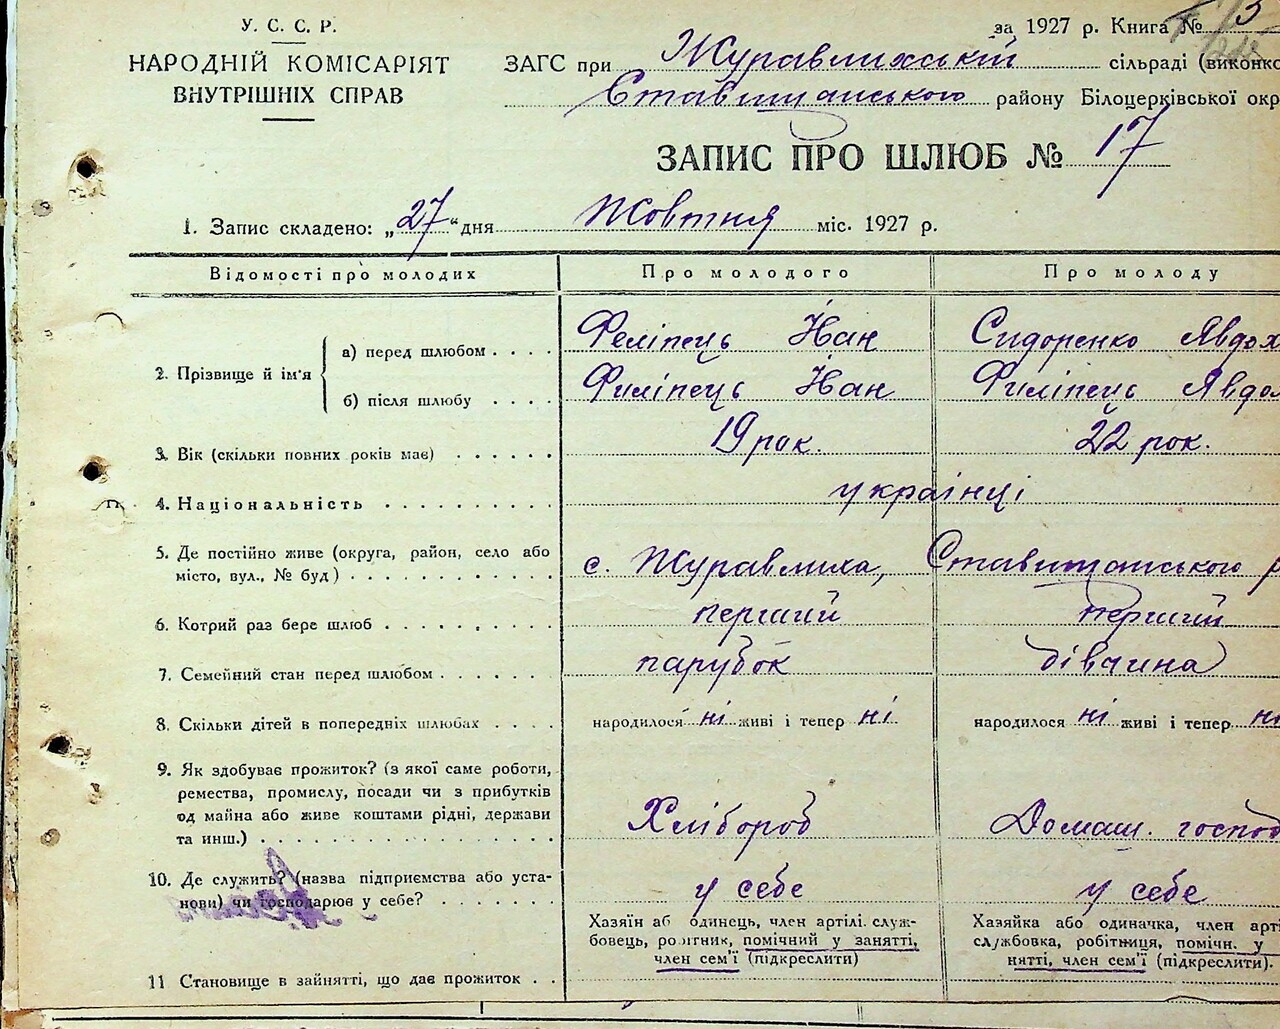 У. С. С. Р.
НАРОДНІЙ КОМІСАРІЯТ
ВНУТРІШНІХ СПРАВ
за 1927 р. Книга №
ЗАГС при Журавлихській сільраді (виконко
Ставищанського району Білоцерківської окр
ЗАПИС ПРО ШЛЮБ № 17
1. Запис складено: „27“ дня Жовтня міс. 1927 р.
Відомості про молодих Про молодого Про молоду
2. Прізвище й ім'я
а) перед шлюбом . . . . Феліпець Іван Сидоренко Явдох
б) після шлюбу . . . . Філіпець Іван Філіпець Явдо
3. Вік (скільки повних років має) . . . . . . 19 рок. 22 рок.
4. Національність . . . . . . . . . . українці
5. Де постійно живе (округа, район, село або
місто, вул., № буд) . . . . . . . . . . . . с. Журавлиха, Ставищанського р
6. Котрий раз бере шлюб . . . . . . . . перший перший
7. Семейний стан перед шлюбом . . . . . . . парубок дівчина
8. Скільки дітей в попередніх шлюбах . . . . народилося ні живі і тепер ні народилося ні живі і тепер ні
9. Як здобуває прожиток? (з якої саме роботи,
ремества, промислу, посади чи з прибутків
од майна або живе коштами рідні, держави
та инш.) . . . . . . . . . . . . . . Хлібороб Домаш. господ
10. Де служить? (назва підприємства або уста-
нови) чи господарює у себе? . . . . . . . . у себе у себе
Хазяїн аб одинець, член артілі. служ-
бовець, робітник, помічний у занятті,
член сем'ї (підкреслити)
Хазяйка або одиначка, член арті
службовка, робітниця, помічн. у
нятті, член сем'ї (підкреслити).
11 Становище в зайнятті, що дає прожиток . .